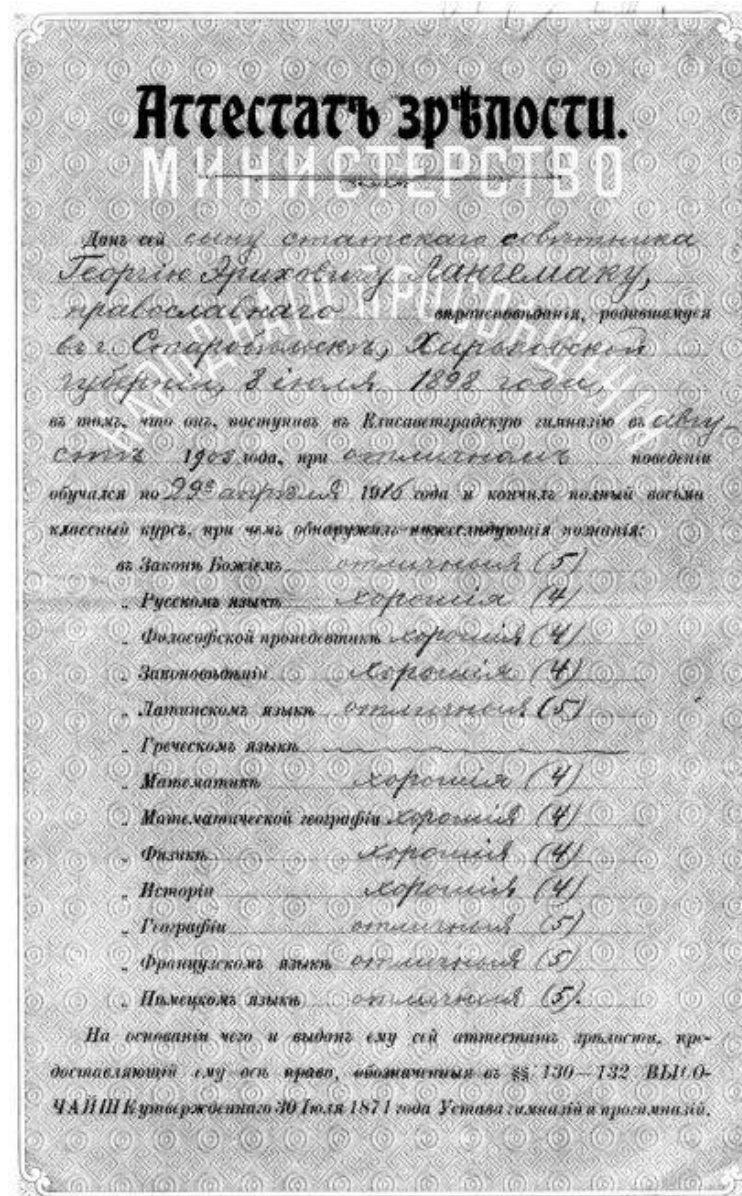 Аттестатъ зрѣлости.
МИНИСТЕРСТВО
НАРОДНАГО ПРОСВѢЩЕНІЯ
Данъ сей сыну статскаго совѣтника
Георгію Эриховичу Лангемаку,
православнаго вѣроисповѣданія, родившемуся
въ г. Старобѣльскѣ, Харьковской
губерніи, 8 іюля 1898 года,
въ томъ, что онъ, поступивъ въ Елисаветградскую гимназію въ авгу-
стѣ года, при отличномъ поведеніи
обучался по 29е апрѣля 1916 года и кончилъ полный восьми
классный курсъ, при чемъ обнаружилъ нижеслѣдующія познанія:
въ Законѣ Божіемъ отличныя (5)
„ Русскомъ языкѣ хорошія (4)
„ Философской пропедевтикѣ хорошія (4)
„ Законовѣдѣніи хорошія (4)
„ Латинскомъ языкѣ отличныя (5)
„ Греческомъ языкѣ
„ Математикѣ хорошія (4)
„ Математической географіи хорошія (4)
„ Физикѣ хорошія (4)
„ Исторіи хорошія (4)
„ Географіи отличныя (5)
„ Французскомъ языкѣ отличныя (5)
„ Нѣмецкомъ языкѣ отличныя (5).
На основаніи чего и выданъ ему сей аттестатъ зрѣлости, пре-
доставляющій ему всѣ права, обозначенныя въ §§ 130—132 ВЫСО-
ЧАЙШЕ утвержденнаго 30 Іюля 1871 года Устава гимназій и прогимназій.